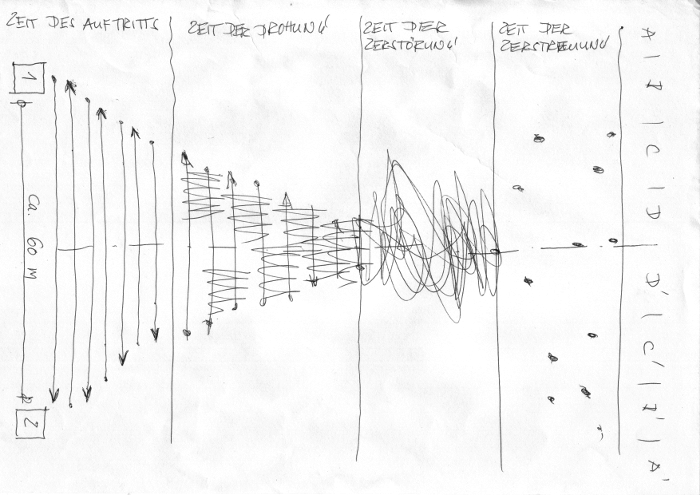 ZEIT DES AUFTRITTS
ZEIT DER DROHUNG
ZEIT DER
ZERSTÖRUNG
ZEIT DER
ZERSTREUUNG
1
ca. 60 M
2
A | B | C | D | D' | C' | B' | A'